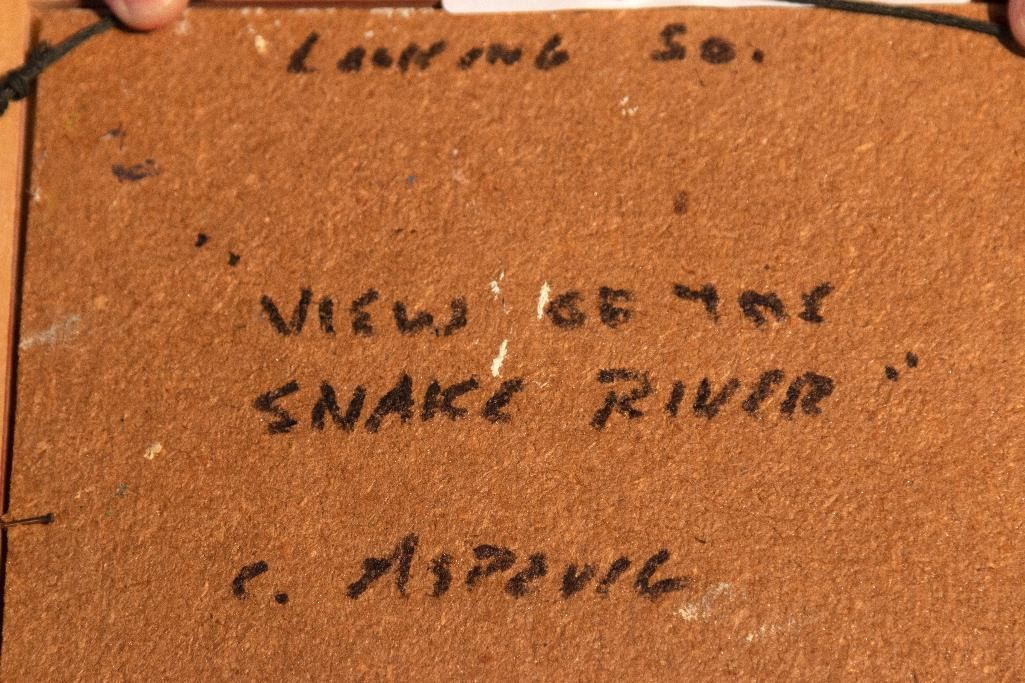 LOOKING SO.
"VIEW OF THE
SNAKE RIVER"
C. ASPEVIG